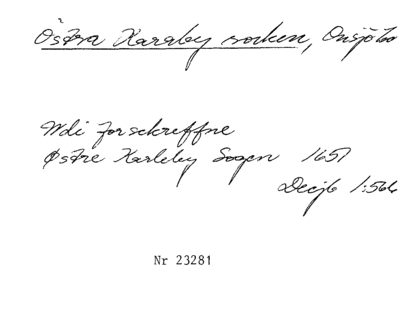 Östra Karaby socken, Onsjö ha
Udi forschreffne
Østre Karleby Sogen 1657
Decjb 1:566
Nr 23281